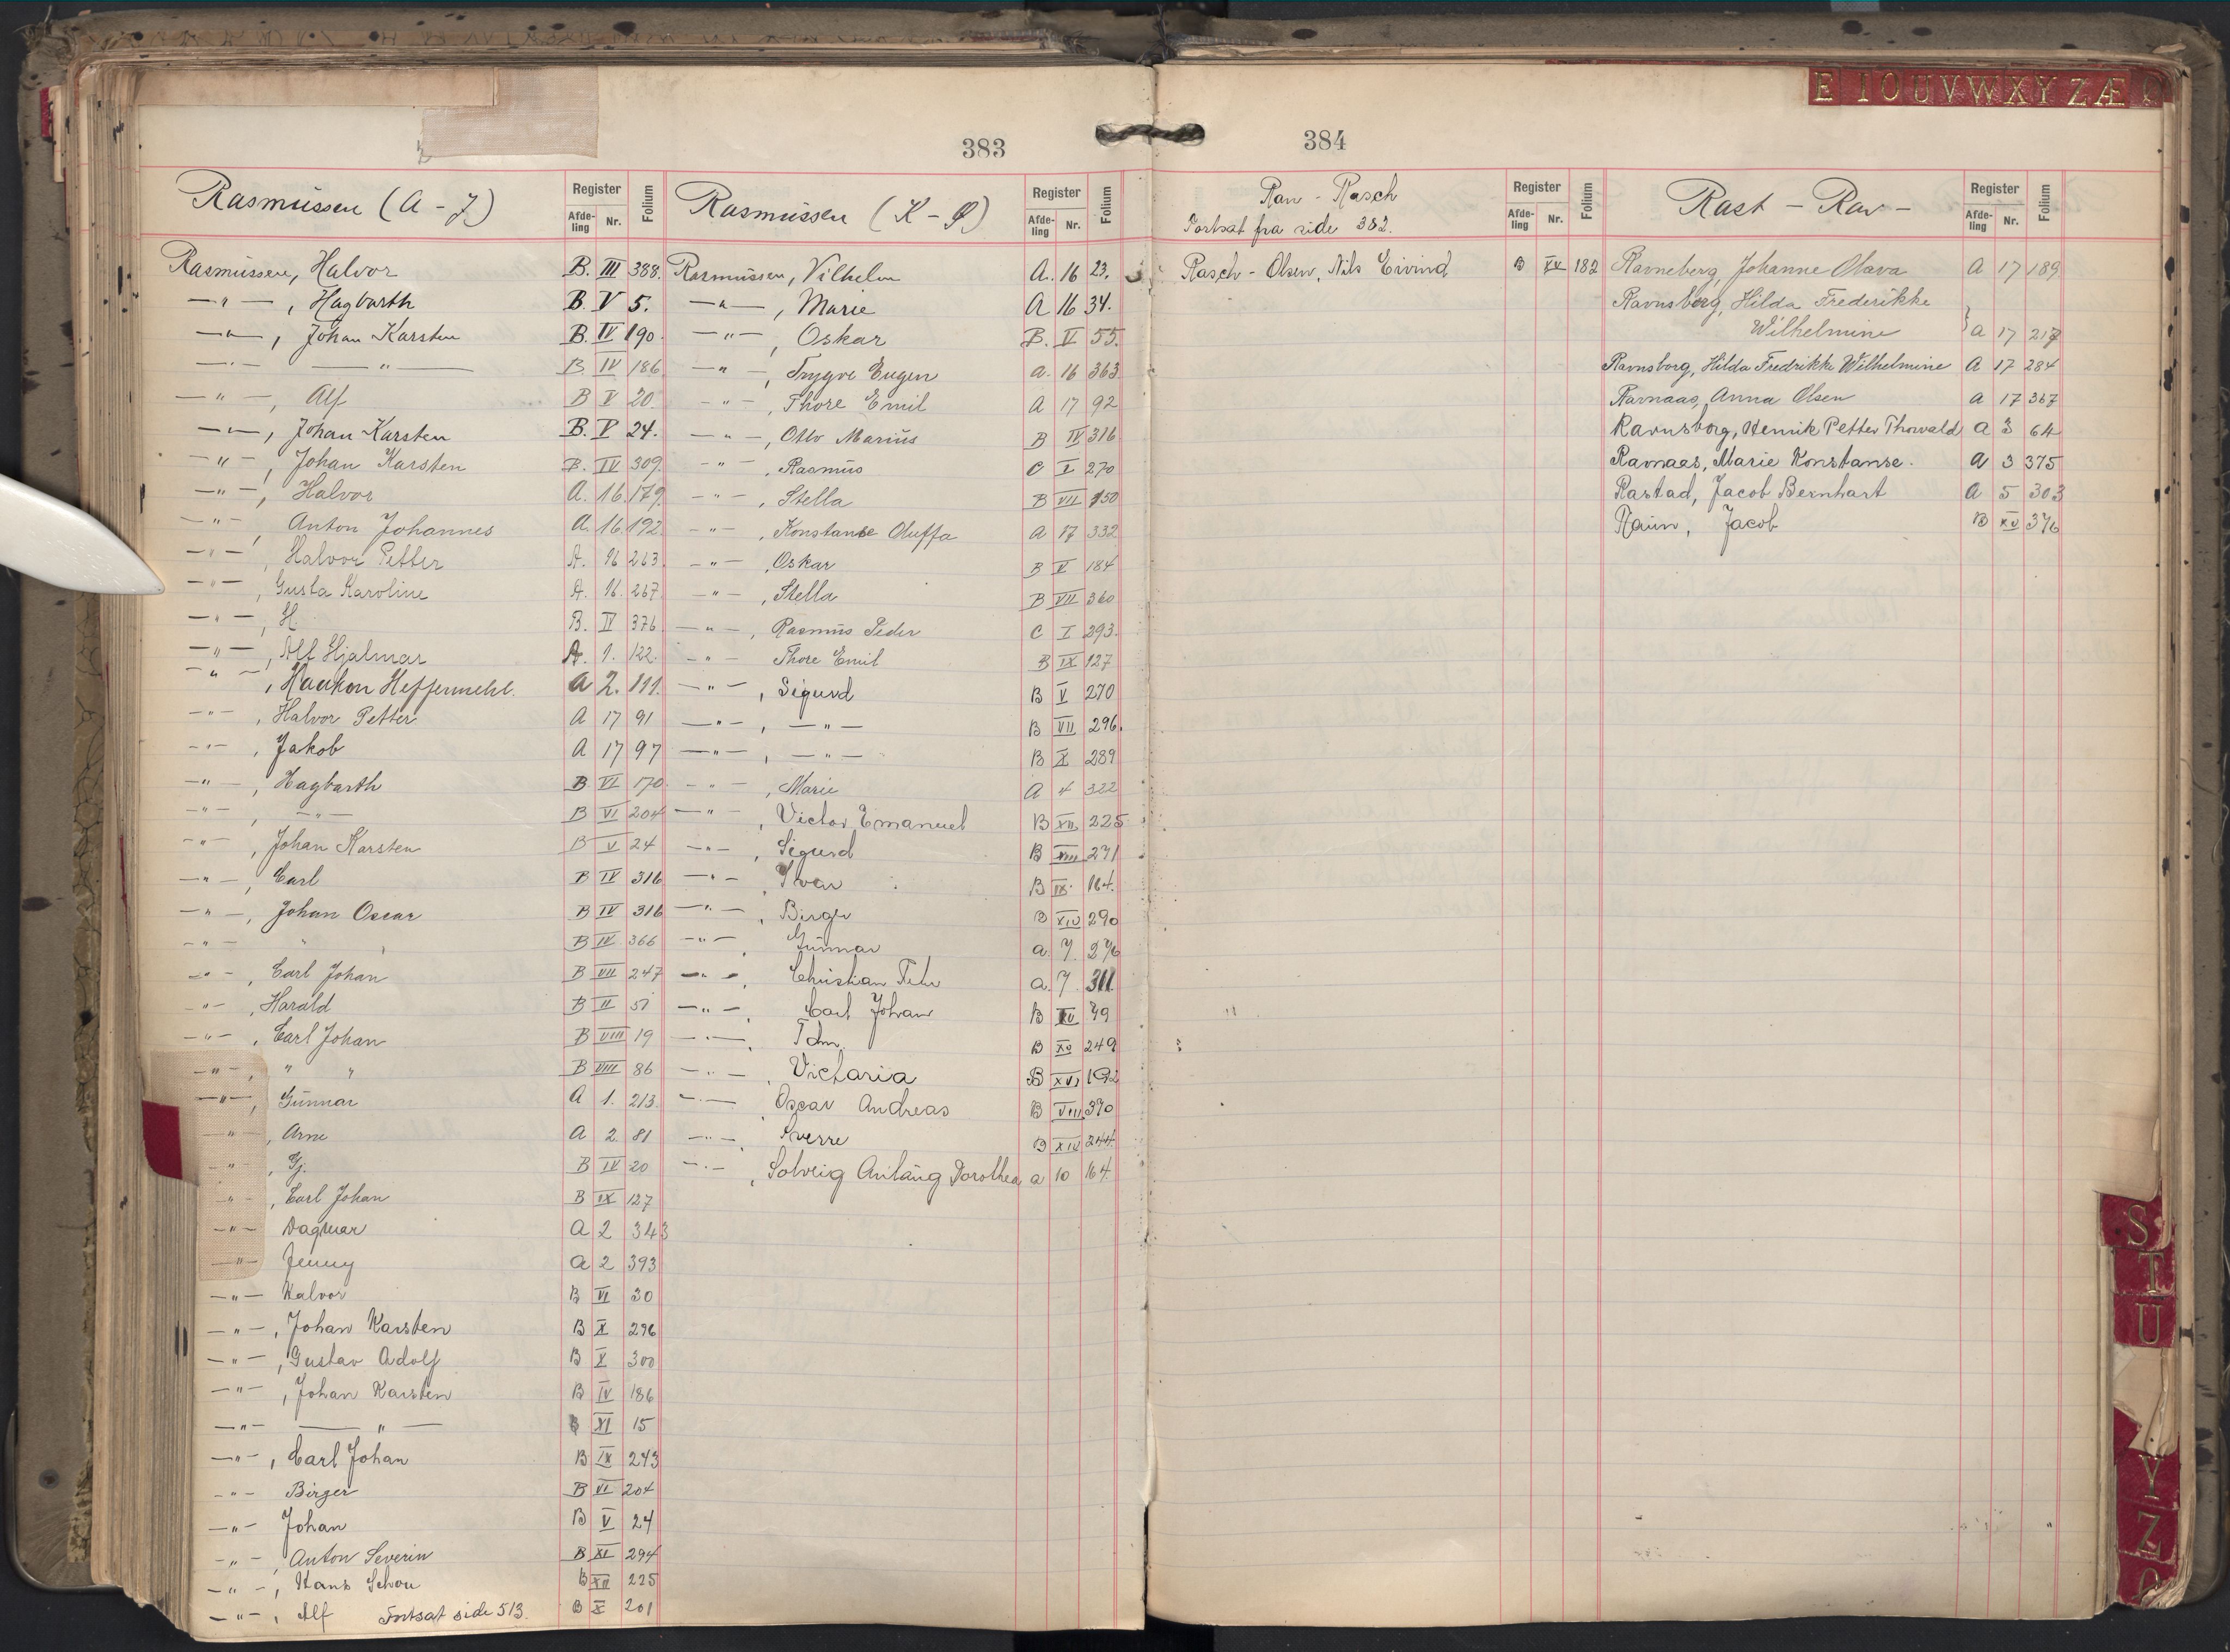 E I O U V W X Y Z Æ
383
Rasmüssen (A - J)
Register
Afdeling Nr. Folium
Rasmüssen, Halvor B. III 388.
—"—, Hagbarth B. V 5.
—"—, Johan Karsten B. IV 190.
—"— —"— B. IV 186
—"—, Alf B V 20.
—"—, Johan Karsten B. V 24.
—"—, Johan Karsten B. IV 309.
—"—, Halvor A. 16. 179.
—"—, Anton Johannes A. 16. 192.
—"—, Halvor Petter A. 16 263.
—"—, Gusta Karoline A. 16. 267.
—"—, H. B. IV 376.
—"—, Alf Hjalmar A. 1. 122.
—"—, Haakon Heffermehl. A 2. 111.
—"—, Halvor Petter A 17 91
—"—, Jakob A 17 97
—"—, Hagbarth B. VI 170
—"—, —"— B VI 204
—"—, Johan Karsten B V 24
—"—, Carl B IV 316
—"—, Johan Oscar B IV 316
—"— " B IV 366
—"—, Carl Johan B VII 247
—"—, Harald B II 51
—"—, Carl Johan B VIII 19
—"—, " " B VIII 86
—"—, Günnar A 1. 213.
—"—, Arne A 2. 81
—"—, Gj. B IV 20
—"—, Carl Johan B IX 127
—"— Dagmar A 2 343
—"— Jenny A 2 393
—"— Halvor B VI 30
—"—, Johan Karsten B X 296
—"—, Gustav Adolf B X 300
—"—, Johan Karsten B IV 186
—"— —"— B XI 15
—"—, Carl Johan B IX 243
—"— Birger B VI 204
—"— Johan B V 24
—"—, Anton Severin B XI 294
—"—, Hans Schou B XII 225
—"—, Alf Fortsat side 513. B X 201
Rasmüssen (K - Ø)
Register
Afdeling Nr. Folium
Rasmüssen, Vilhelm A. 16 23.
—"—, Marie A 16 34.
—"—, Oskar B. V 55.
—"—, Trygve Eugen A. 16 363
—"—, Thore Emil A 17 92
—"—, Otto Mariüs B IV 316
—"—, Rasmüs C I 270
—"—, Stella B VII 150
—"—, Konstanse Oluffa A 17 332
—"—, Oskar B V 184
—"—, Stella B VII 360
—"—, Rasmüs Peder C I 293.
—"— Thore Emil B IX 127
—"—, Sigurd B V 270
—"—, —"— B VII 296.
—"—, —"— B X 289
—"—, Marie A 4 322
—"—, Victor Emanuel B XII 225
—"—, Sigurd B XIII 271
—"—, Ivar B IX 164.
—"—, Birger B XIV 290
—"— Günnar a. 7. 276
—"—, Christian a. 7. 311.
—"—, Carl Johan B XV 79
—"—, B XV 249
—"—, Victoria B XVI 192
—"— Oscar Andreas B VIII 370
—"—, Sverre B XIV 244.
—"—, Solveig Dorothea a 10 164.
384
Ran - Rasch
Fortsat fra side 382.
Register
Afdeling Nr. Folium
Rasch - Olsen, Nils Eivind B XX 182
Rast - Rav -
Register
Afdeling Nr. Folium
Ravneberg, Johanne Olava A 17 189
Ravnsborg, Hilda Frederikke
Wilhelmine } A 17 217
Ravnsborg, Hilda Fredrikke Wilhelmine A 17 284
Ravnaas, Anna Olsen A 17 367
Ravnsborg, Henrik Petter Thorvald A 3 64
Ravnaas, Marie Konstanse. A 3 375
Rastad, Jacob Bernhart A 5 303
Raün, Jacob B XV 376
S
T
U
Y
Z